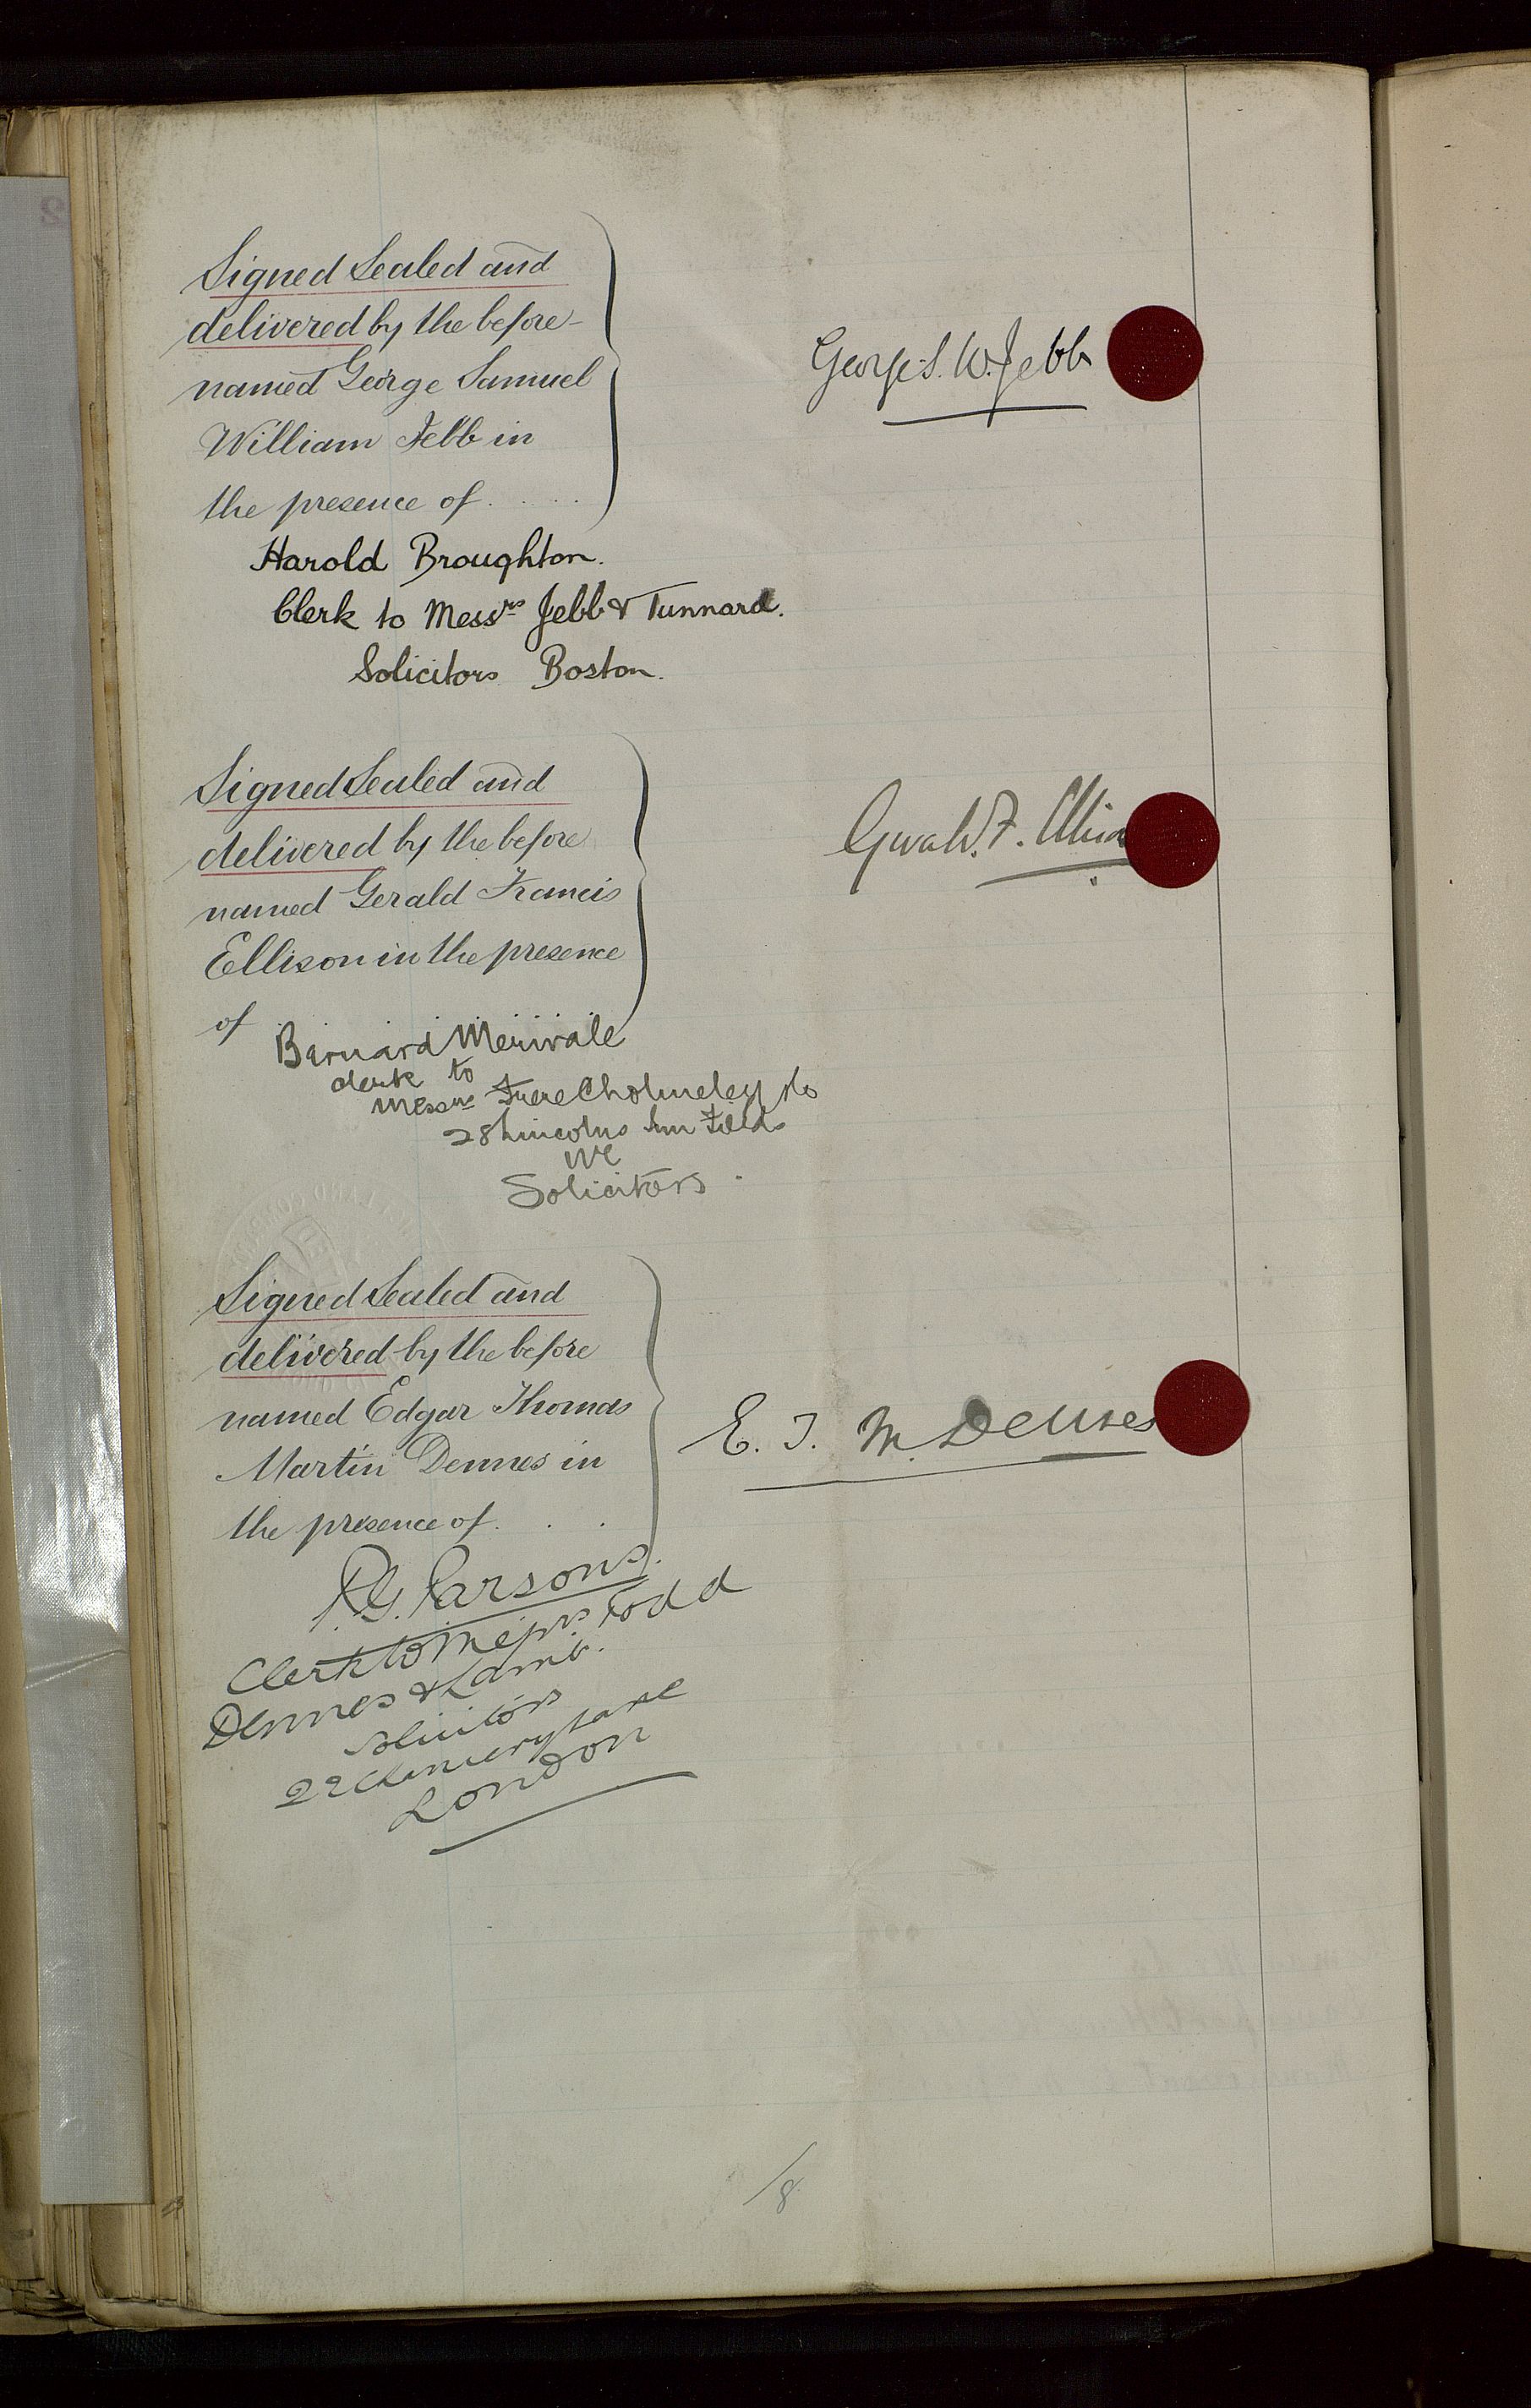 Signed Sealed and
delivered by the before-
named George Samuel
William Jebb in
the presence of . . . .
George S. W. Jebb
Harold Broughton.
Clerk to Messrs Jebb & Tunnard.
Solicitors Boston.
Signed Sealed and
delivered by the before
named Gerald Francis
Ellison in the presence
of
Gerald. F. Ellison
Barnard Merivale
clerk to
Messrs Frere Cholmeley & Co
28 Lincolns Inn Fields
WC
Solicitors.
Signed Sealed and
delivered by the before
named Edgar Thomas
Martin Dennes in
the presence of . . .
E. T. M. Dennes
Parsons.
Clerk to Messrs. Todd
Dennes & Lamb.
Solicitors
22 Chancery Lane
London
/8